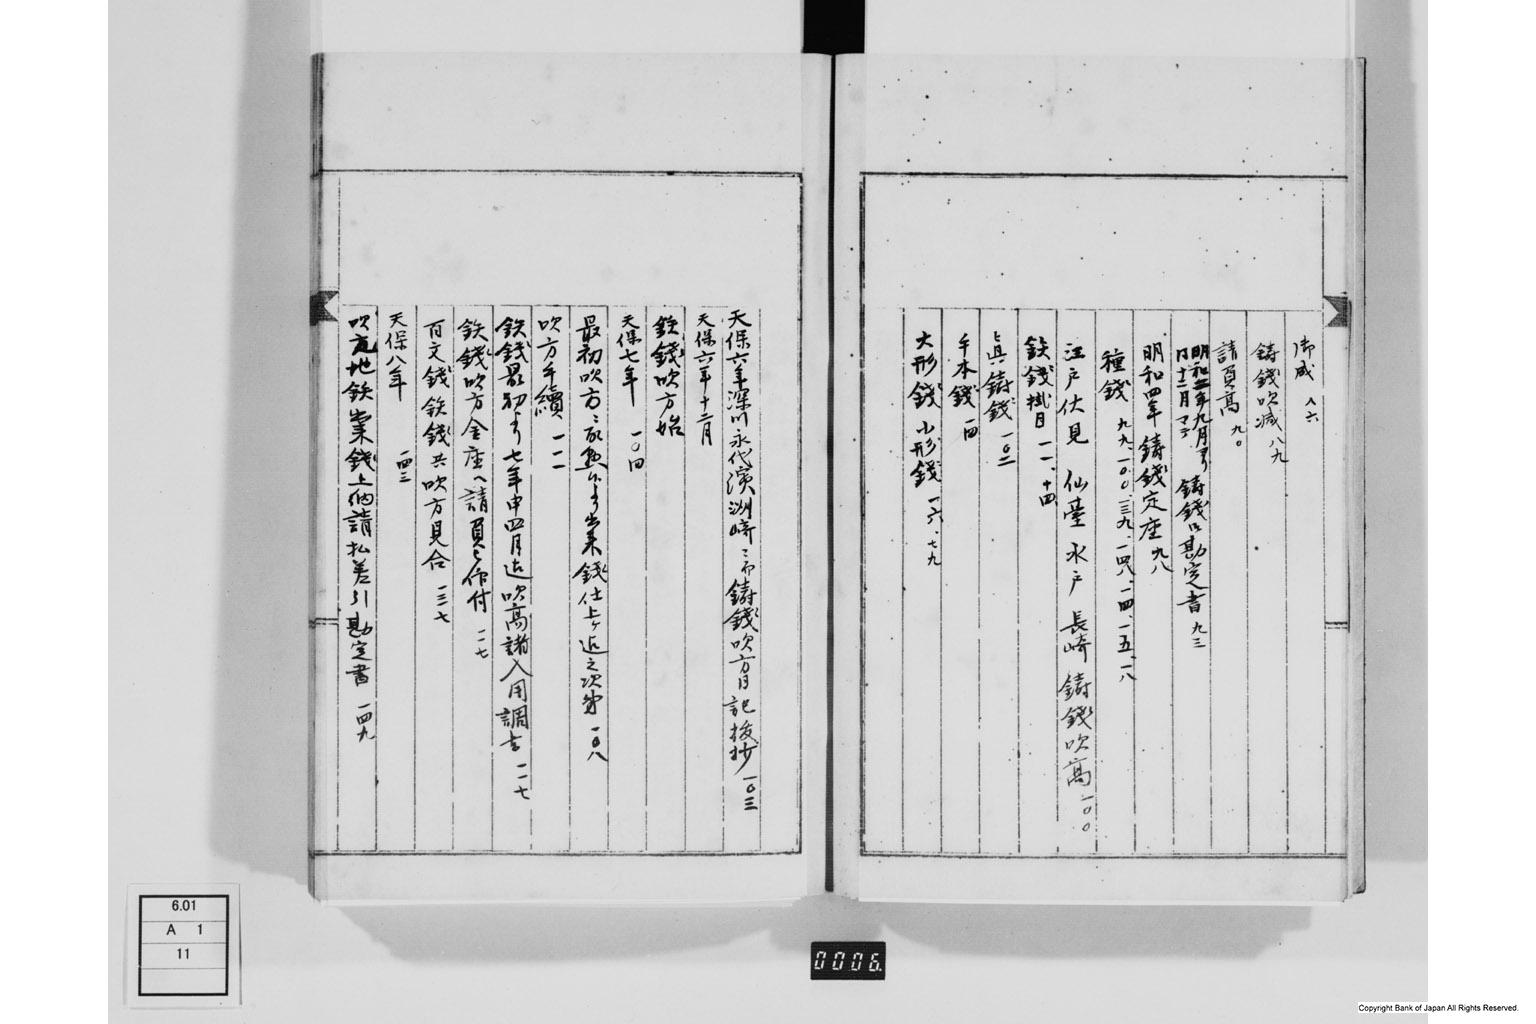 御減 八六
鋳錢吹減 八九
請負高 九〇
明和五年九月ゟ
同十二月マテ 鋳錢口勘定書 九三
明和四年鋳錢定座 九八
種錢 九九、一〇〇、三九、一四八、一四、一五、一八
江戸 伏見 仙臺 水戸 長崎 鋳錢吹高 一〇〇
鉄錢掛目 一一、十四
眞鋳錢 一〇二
手本錢 一四
大形錢 小形錢 一六、七九
天保六年深川永代濱洲崎ニ而鋳錢吹方日記抜抄 一〇三
天保六年十二月
鉄錢吹方始
天保七年 一〇四
最初吹方ニ取懸候ゟ出来錢仕上ヶ迄之次第 一〇八
吹方手續 一一一
鉄錢最初ゟ七年申四月迄吹高諸入用調書 一一七
鉄錢吹方金座ヘ請負被仰付 一二七
百文錢鉄錢共吹方見合 一三七
天保八年 一四三
吹立地鉄出来錢上納請払差引勘定書 一四九
6.01
A 1
11
0006.
Copyright Bank of Japan All Rights Reserved.